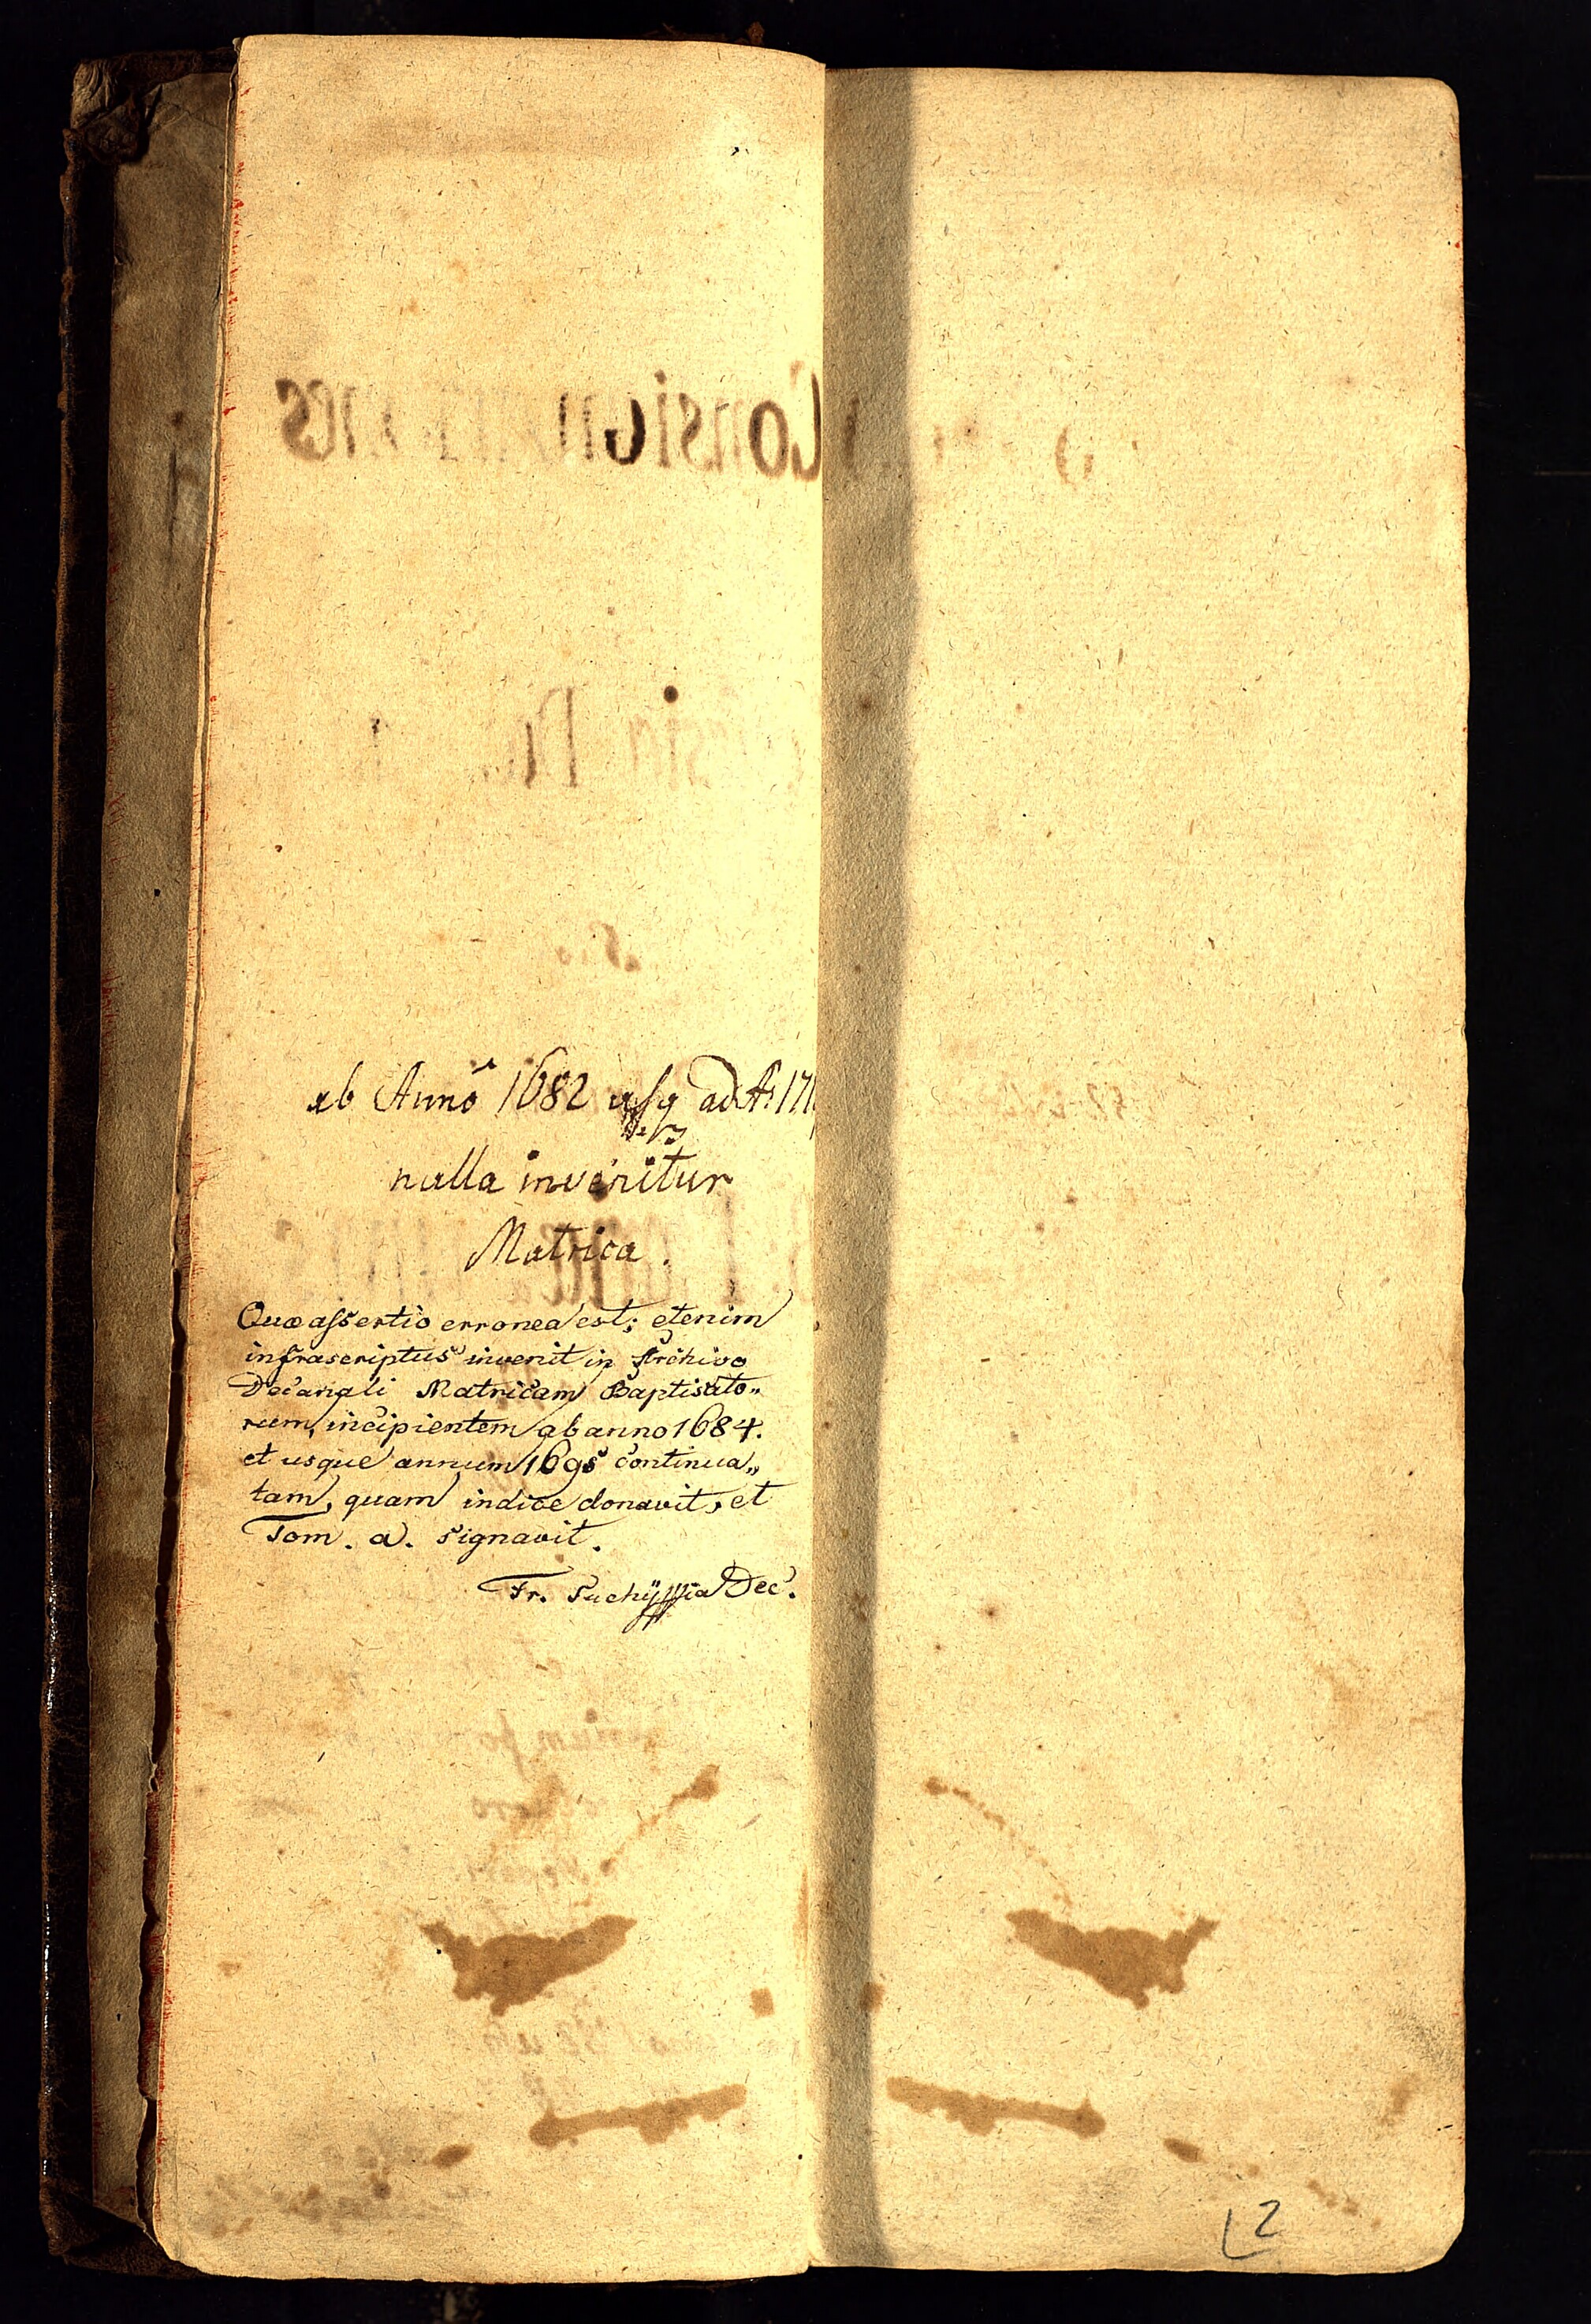 ab Anno 1682 usq ad A: 171
nulla invenitur
Matrica.
Quæ assertio erronea est; etenim
infrascriptus invenit in Archivo
Decanali Matricam Baptisato„
rum, incipientem ab anno 1684.
et usque annum 1695 continua„
tam, quam indice donavit, et
Tom. a. signavit.
Fr. Dec.
2